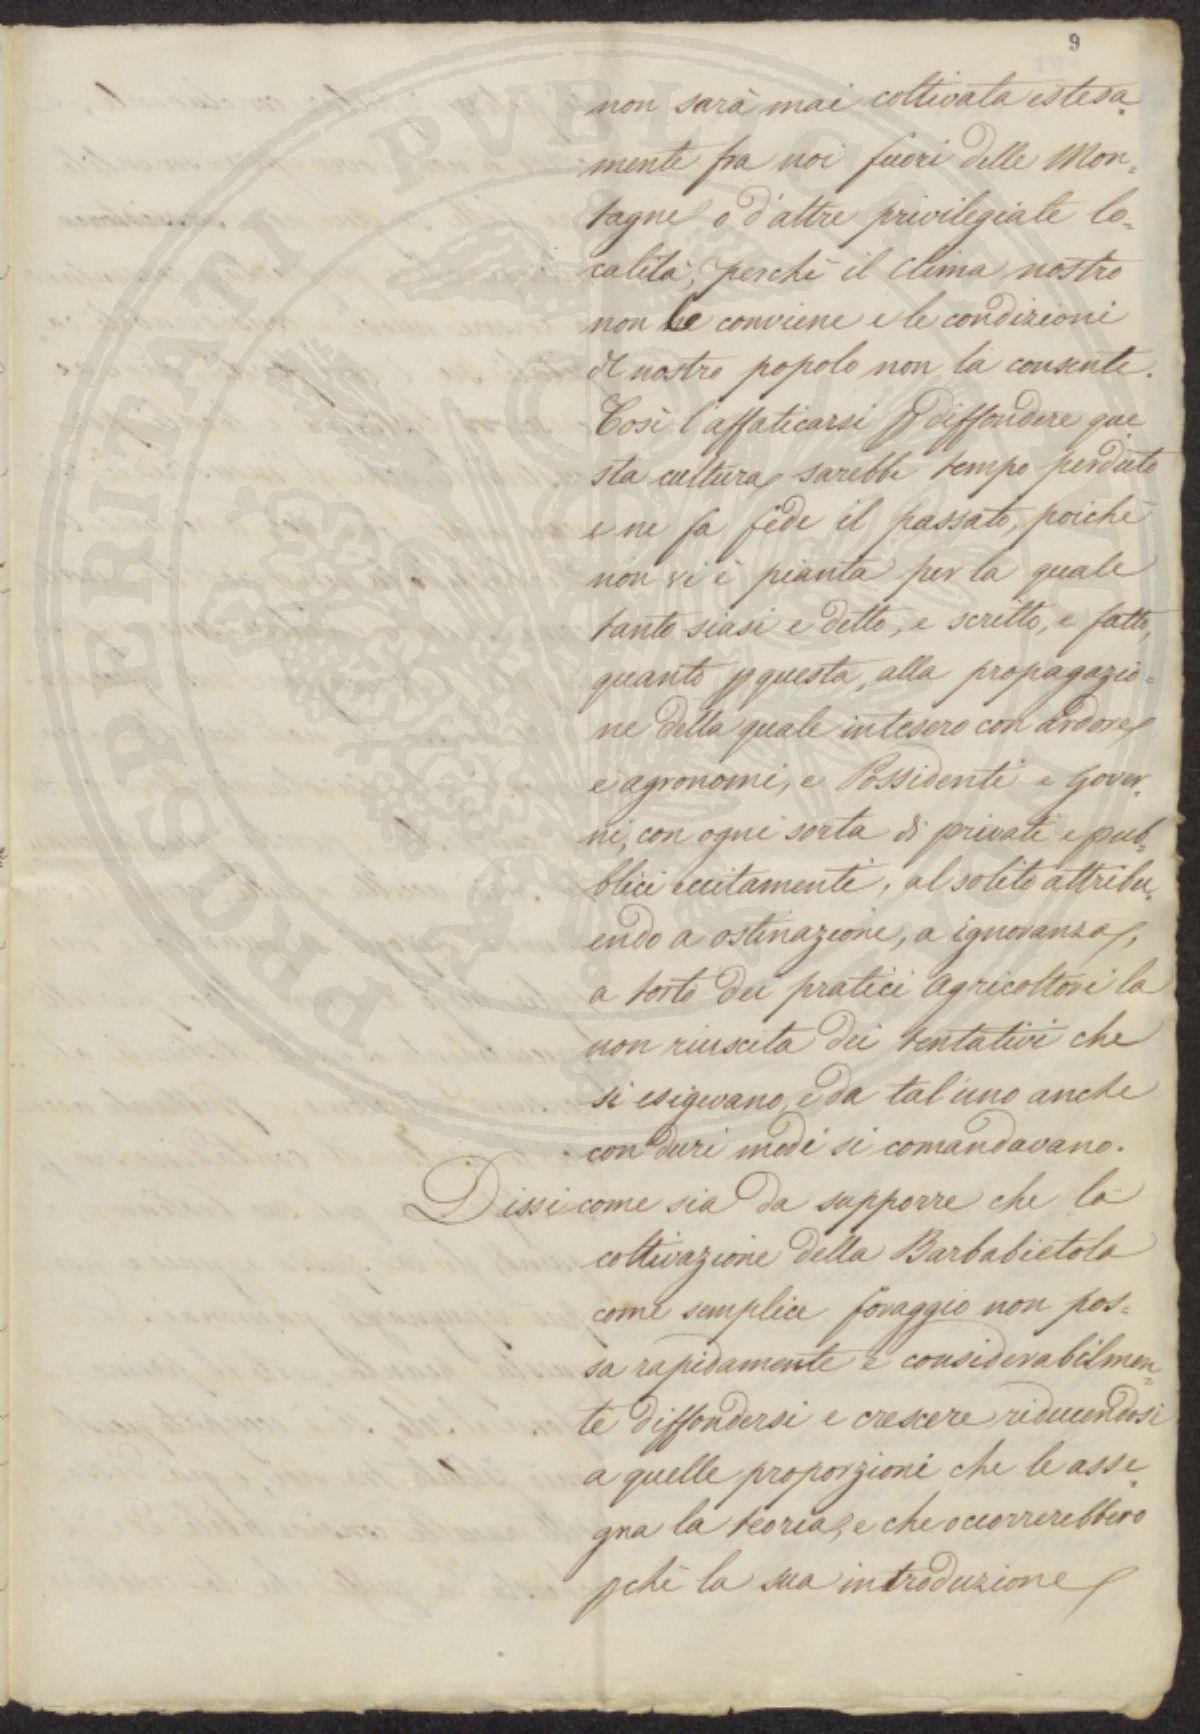 9
non sarà mai coltivata estesa=
mente fra noi fuori delle Mon=
tagne o d'altre privilegiate lo=
calità, perchè il clima nostro
non le conviene e le condizioni
del nostro popolo non la consente.
Così l'affaticarsi p diffondere que
sta cultura sarebbe tempo perduto
e ne fa fede il passato, poichè
non vi è pianta per la quale
tanto siasi e detto, e scritto, e fatto,
quanto p questa, alla propagazio=
ne della quale intesero con ardore
e agronomi, e Possidenti e Gover=
ni, con ogni sorta di privati e pub=
blici eccitamenti, al solito attribu=
endo a ostinazione, a ignoranza,
a torto dei pratici Agricoltori la
non riuscita dei tentativi che
si esigevano, e da tal'uno anche
con duri modi si comandavano.
Dissi come sia da supporre che la
coltivazione della Barbabietola
come semplice foraggio non pos=
sa rapidamente e considerabilmen=
te diffondersi e crescere riducendosi
a quelle proporzioni che le asse=
gna la teoria, e che occorrerebbero
pchè la sua introduzione
PROSPERITATI PVBLICAE AVGENDAE